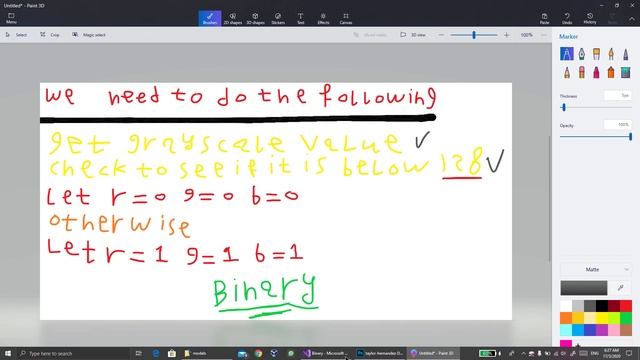 Untitled* - Paint 3D
Menu
Brushes
2D shapes
3D shapes
Stickers
Text
Effects
Canvas
3D library
Paste
Undo
History
Redo
Select
Crop
Magic select
3D view
100%
Marker
we need to do the following
get grayscale value ✓
check to see if it is below 128 ✓
Let r=0 g=0 b=0
otherwise
Let r=1 g=1 b=1
Binary
Thickness
5px
Opacity
100%
Matte
Type here to search
models
Binary - Microsoft ...
taylor hernandez D...
Untitled* - Paint 3D